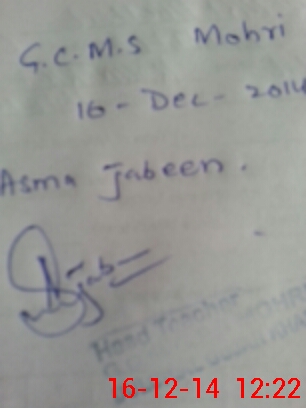 G.C.M.S Mohri
16-Dec-2014
Asma Jabeen.
Head Teacher
16-12-14 12:22